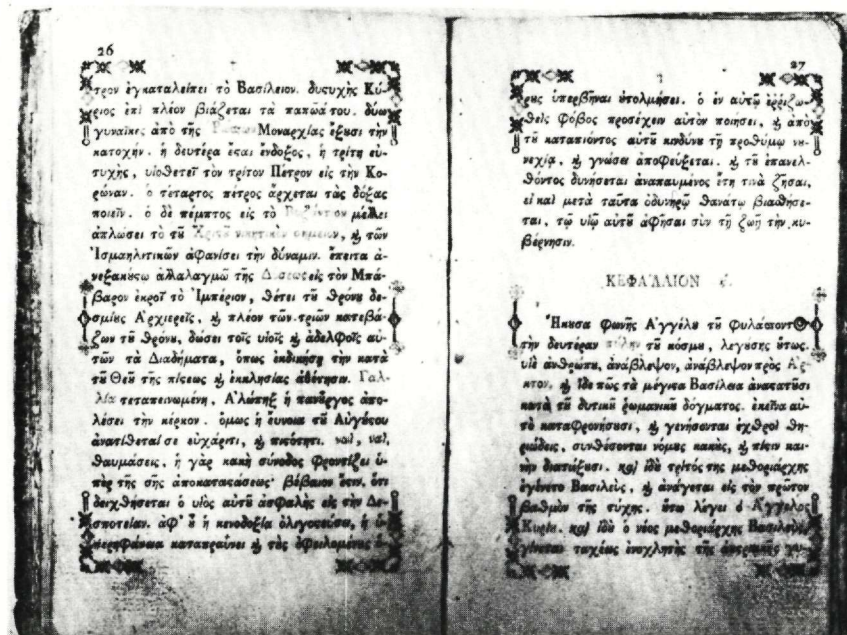 26
τρον ἐγκαταλείπει τὸ Βασίλειον. δυςυχὴς Κύ-
ριος ἐπὶ πλέον βιάζεται τὰ παπῶά του. δύω
γυναῖκες ἀπὸ τῆς Μοναρχίας ἔξυσι τὴν
κατοχήν. ἡ δευτέρα ἔςαι ἔνδοξος, ἡ τρίτη εὐ-
τυχὴς, υἱοθετεῖ τὸν τρίτον Πέτρον εἰς τὴν Κο-
ρώναν. ὁ τέταρτος πέτρος ἄρχεται τὰς δόξας
ποιεῖν. ὁ δὲ πέμπτος εἰς τὸ Βυζάντιον μέλλει
ἁπλώσει τὸ τȣ̃ Χριςȣ̃ νικητικὸν σημεῖον, ϗ τῶν
Ἰσμαηλιτικῶν ἀφανίσει τὴν δύναμιν. ἔπειτα ἀ-
νεξακύςω ἀλλαλαγμῷ τῆς Δύσεως εἰς τὸν Μπά-
βαρον ἐκροῖ τὸ Ἰμπέριον, θέτει τȣ̃ θρόνȣ δε-
σμίȣς Ἀρχιερεῖς, ϗ πλέον τῶν τριῶν κατεβά-
ζων τȣ̃ θρόνȣ, δώσει τοῖς υἱοῖς ϗ ἀδελφοῖς αὐ-
τῶν τὰ Διαδήματα, ὅπως ἐκδικήσῃ τὴν κατὰ
τȣ̃ Θεȣ̃ τῆς πίςεως ϗ ἐκκλησίας ἀθέτησιν. Γαλ-
λία τεταπεινωμένη, Ἀλώπηξ ἡ πανȣ̃ργος ἀπο-
λέσει τὴν κέρκον. ὅμως ἡ εὔνοια τȣ̃ Αὐγȣ́ςȣ
ἀνατίθεταί σε εὐχάριτι, ϗ πικότητι. ναὶ, ναὶ,
θαυμάσεις, ἡ γὰρ κακὴ σύνοδος φροντίζει ὑ-
πὲρ τῆς σῆς ἀποκαταςάσεως· βέβαιον ἐςιν, ὅτι
δειχθήσεται ὁ υἱὸς αὐτȣ̃ ἀσφαλὴς εἰς τὴν Δε-
σποτείαν. ἀφ' ȣ̃ ἡ κενοδοξία ὀλιγοςεύσει, ἡ ὑ-
περηφάνεια καταπραΰνει ϗ τȣ̀ς ὀφειλομένȣς
27
ρȣς ὑπερβῆναι ὐτολμήσει. ὁ ἐν αὐτῷ ἐῤῥιζω-
θεὶς φόβος προσέχειν αὐτὸν ποιήσει, ϗ ἀπὸ
τȣ̃ καταπιόντος αὐτȣ̀ κινδύνȣ τῇ προθύμῳ νȣ-
νεχίᾳ, ϗ γνώσει ἀποφεύξεται. ϗ τȣ̃ ἐπανελ-
θόντος δυνήσεται ἀναπαυμένος ἔτη τινὰ ζῆσαι,
εἰ καὶ μετὰ ταῦτα ὀδυνηρῷ θανάτῳ βιαθήσε-
ται, τῷ υἱῷ αὐτȣ̃ ἀφῆσαι σὺν τῇ ζωῇ τὴν κυ-
βέρνησιν.
ΚΕΦΑΛΑΙΟΝ ς΄.
Ἤκȣσα φωνῆς Ἀγγέλȣ τȣ̃ φυλάσσοντος
τὴν δευτέραν πύλην τȣ̃ κόσμȣ, λεγȣ́σης ȣ̔́τως.
υἱὲ ἀνθρώπȣ, ἀνάβλεψον, ἀνάβλεψον πρὸς Ἄρ-
κτον, ϗ ἴδε πῶς τὰ μέγιςα Βασίλεια ἀνακατȣ̃σι
κατὰ τȣ̃ δυτικȣ̃ ῥωμανικȣ̃ δόγματος. ἐκεῖνα αὐ-
τὸ καταφρονήσȣσι, ϗ γενήσονται ἐχθροὶ θη-
ριώδεις, συνθέσονται νόμȣς κακȣ̀ς, ϗ πίςιν και-
νὴν διατάξȣσι. καὶ ἰδȣ̀ τρίτός της μεθοριάρχης
ἐγένετο Βασιλεὺς, ϗ ἀνάγεται εἰς τὸν πρῶτον
βαθμὸν τῆς τύχης. ȣ̔́τω λέγει ὁ Ἄγγελος
Κυρίȣ. καὶ ἰδȣ̀ ὁ νέος μεθοριάρχης Βασιλεὺς,
γίνεται ταχέως ἐνοχλητὴς τῆς